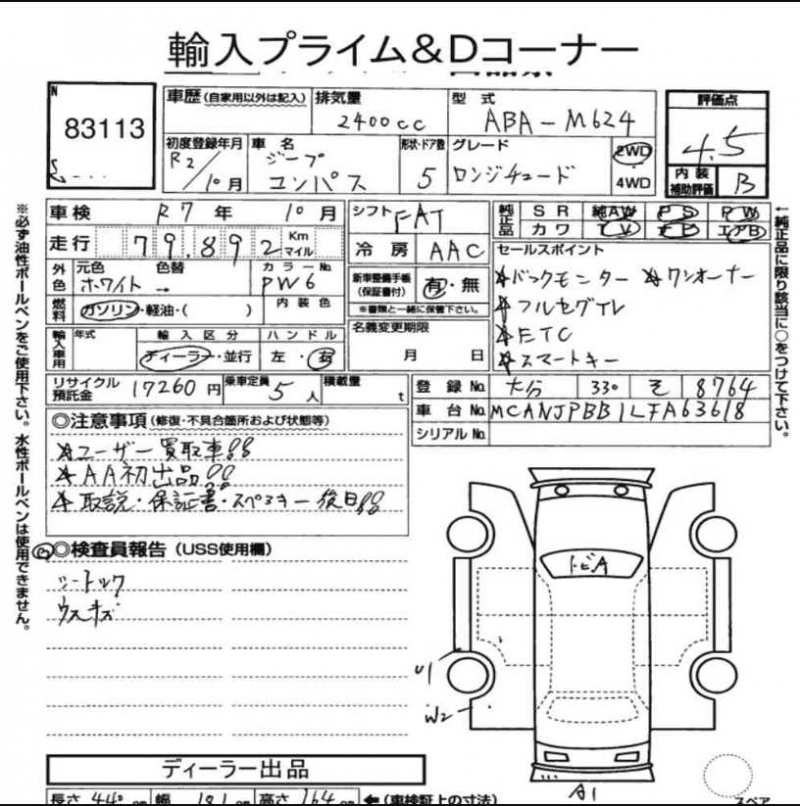 輸入プライム&Dコーナー
83113
車歴(自家用以外は記入)
排気量
2400cc
型式
ABA-M624
評価点
4.5
初度登録年月
R2/10月
車名
ジープ
コンパス
形状・ドア数
5
グレード
ロンジチュード
2WD
・
4WD
内装
補助評価
B
車検 R7年 10月
走行 79,892 Km マイル
シフト FAT
冷房 AAC
純正品 SR 純AW PS PW
カワ TV ナビ エアB
外色
元色 色替
ホワイト →
カラーNo
PW6
燃料 ガソリン・軽油・( )
内装色
新車整備手帳
(保証書付)
有・無
※書類と一緒に保管下さい。
セールスポイント
☆バックモニター ☆ワンオーナー
☆フルセグTV
☆ETC
☆スマートキー
輸入車用
年式
輸入区分
ディーラー・並行
ハンドル
左・右
名義変更期限
月 日
リサイクル
預託金
17260円
乗車定員 5人
積載量 t
登録No. 大分 330 そ 8764
車台No. MCANJPBB1LFA63618
シリアルNo.
◎注意事項(修復・不具合箇所および状態等)
☆ユーザー買取車!!
☆AA初出品!!
☆取説・保証書・スペアキー後日!!
◎検査員報告(USS使用欄)
シートスック
ウスキズ
トビA
U1
W2
A1
スペア
ディーラー出品
長さ 440 cm 幅 181 cm 高さ 164 cm ←(車検証上の寸法)
※必ず油性ボールペンをご使用下さい。水性ボールペンは使用できません。
←純正品に限り該当に○をつけて下さい。